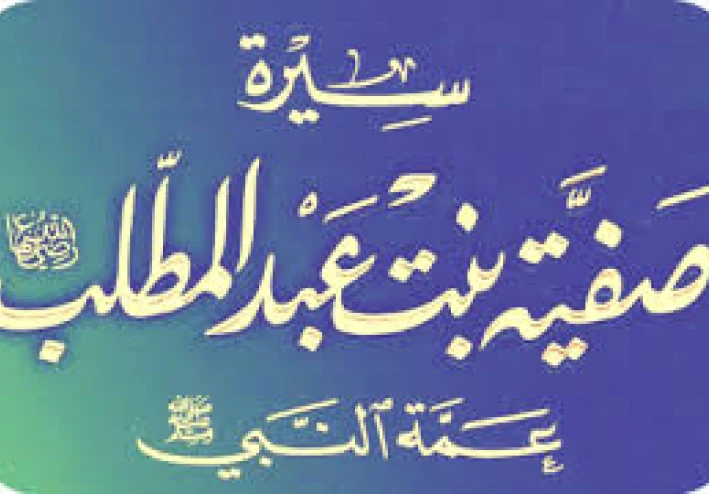 سِيْرة
صَفيَّة بنْت عَبْد المطّلب رضي الله عنها
عَمَّة ٱلنَّبي ﷺ